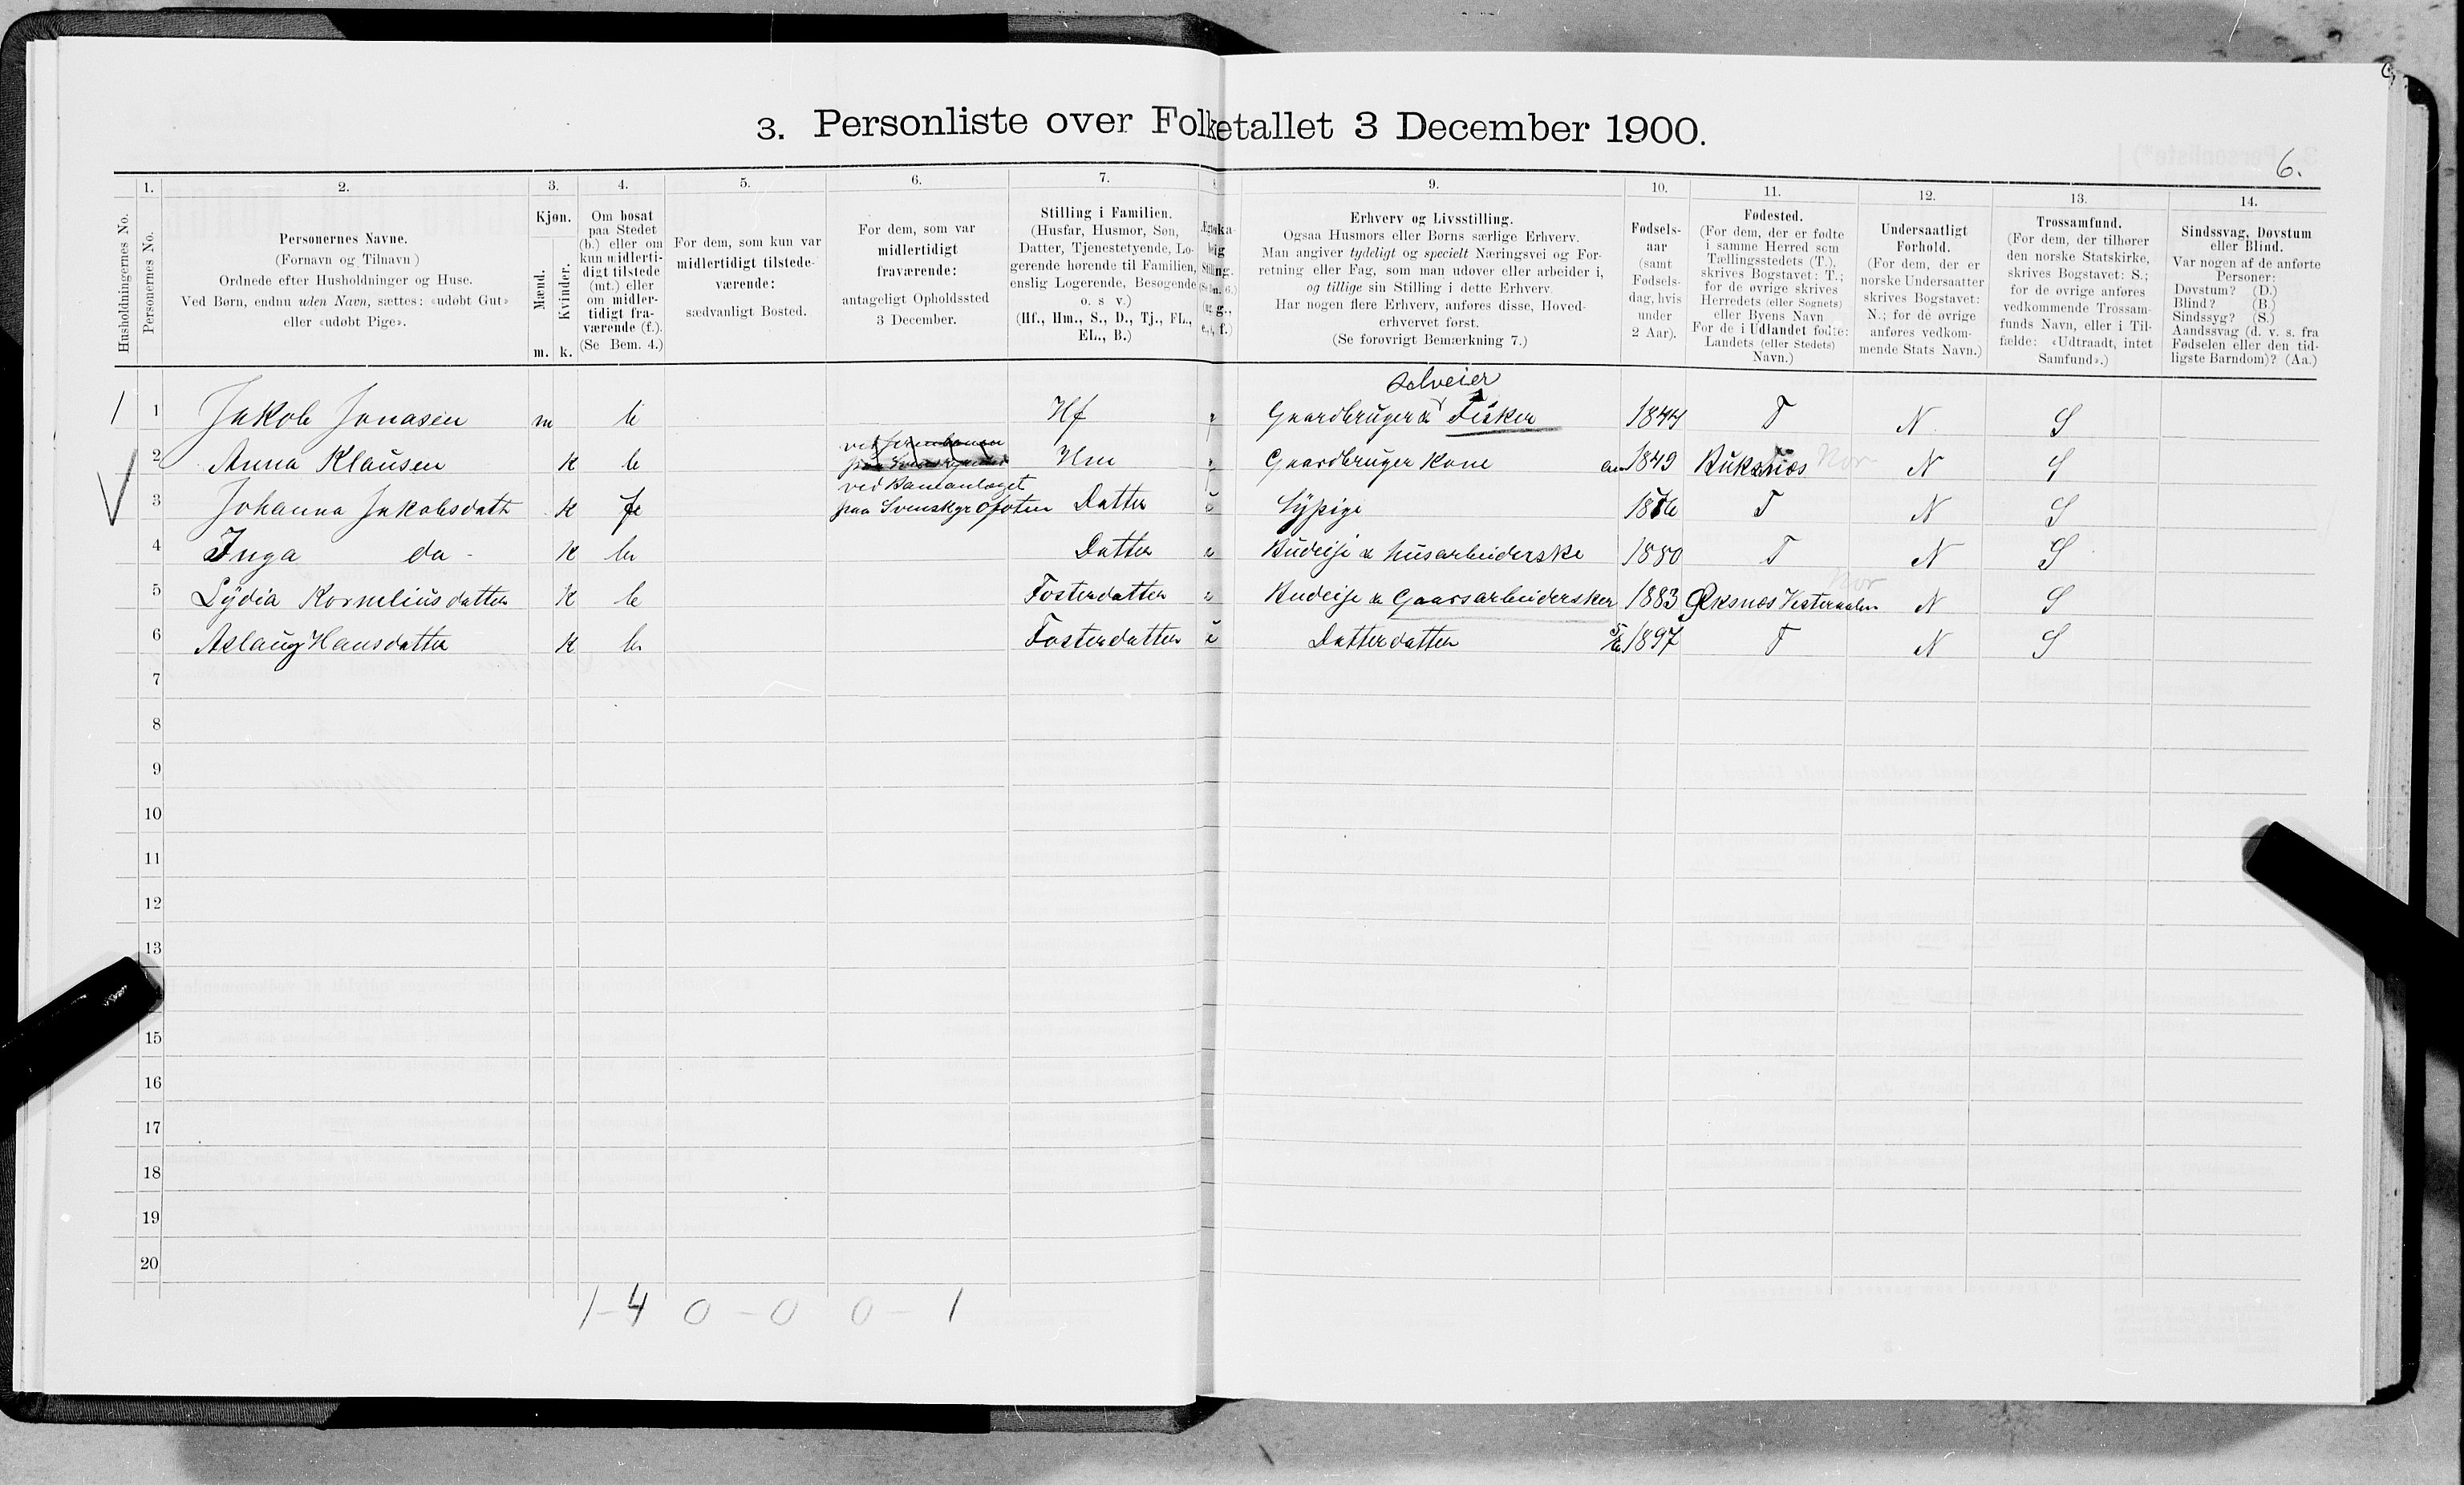 3. Personliste over Folketallet 3 December 1900.
6.
Husholdningernes No.
1.
Personernes No.
2.
Personernes Navne.
(Fornavn og Tilnavn)
Ordnede efter Husholdninger og Huse.
Ved Børn, endnu uden Navn, sættes: «udøbt Gut»
eller «udøbt Pige».
3.
Kjøn.
Mænd.
Kvinder.
m. k.
4.
Om bosat
paa Stedet
(b.) eller om
kun midlerti-
digt tilstede
(mt.) eller
om midler-
tidigt fra-
værende (f.).
(Se Bem. 4.)
5.
For dem, som kun var
midlertidigt tilstede-
værende:
sædvanligt Bosted.
6.
For dem, som var
midlertidigt
fraværende:
antageligt Opholdssted
3 December.
7.
Stilling i Familien.
(Husfar, Husmor, Søn,
Datter, Tjenestetyende, Lo-
gerende hørende til Familien,
enslig Logerende, Besøgende
o. s v.)
(Hf., Hm., S., D., Tj., FL.,
EL., B.)
9.
Erhverv og Livsstilling.
Ogsaa Husmors eller Børns særlige Erhverv.
Man angiver tydeligt og specielt Næringsvei og For-
retning eller Fag, som man udøver eller arbeider i,
og tillige sin Stilling i dette Erhverv.
Har nogen flere Erhverv, anføres disse, Hoved-
erhvervet først.
(Se forøvrigt Bemærkning 7.)
10.
Fødsels-
aar
(samt
Fødsels-
dag, hvis
under
2 Aar).
11.
Fødested.
(For dem, der er fødte
i samme Herred som
Tællingsstedets (T.),
skrives Bogstavet: T.;
for de øvrige skrives
Herredets (eller Sognets)
eller Byens Navn
For de i Udlandet fødte:
Landets (eller Stedets)
Navn.)
12.
Undersaatligt
Forhold.
(For dem, der er
norske Undersaatter
skrives Bogstavet:
N.; for de øvrige
anføres vedkom-
mende Stats Navn.)
13.
Trossamfund.
(For dem, der tilhører
den norske Statskirke,
skrives Bogstavet: S.;
for de øvrige anføres
vedkommende Trossam-
funds Navn, eller i Til-
fælde: «Udtraadt, intet
Samfund».)
14.
Sindssvag, Døvstum
eller Blind.
Var nogen af de anførte
Personer:
Døvstum? (D.)
Blind? (B.)
Sindssyg? (S.)
Aandssvag (d. v. s. fra
Fødselen eller den tid-
ligste Barndom)? (Aa.)
Selveier
1 1 Jakob Jonasen m b Hf g Gaardbruger & Fisker 1844 T N S
2 Anna Klausen k b Hm g Gaardbruger Kone 1849 Buksnæs Nor N S
ved Baneanlæget
3 Johanna Jakobsdatt k f paa Svenskgr Ofoten Datter u Sÿpige 1876 T N S
4 Inga do - k b Datter u Budeije & husarbeiderske 1880 T N S
Nor
5 Lÿdia Korneliusdatter k b Fosterdatter u Budeije & Gaarsarbeidersker 1883 Øksnæs Vesteraalen N S
6 Aslaug Hansdatter k b Fosterdatter u Datterdatter 1897 T N S
7
8
9
10
11
12
13
15
16
17
18
19
20
1-4 0-0 0-1